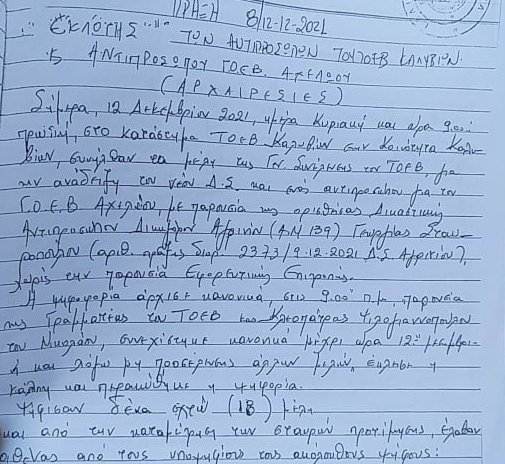 ΠΡΑΞΗ 8/12-12-2021
ΕΚΛΟΓΗΣ ΤΩΝ ΑΝΤΙΠΡΟΣΩΠΩΝ ΤΟΥ ΤΟΕΒ ΚΑΛΥΒΙΩΝ
& ΑΝΤΙΠΡΟΣΩΠΟΥ ΓΟΕΒ. ΑΧΕΛΩΟΥ
(ΑΡΧΑΙΡΕΣΙΕΣ)
Σήμερα, 12 Δεκεμβρίου 2021, ημέρα Κυριακή και ώρα 9.00
πρωϊνή, στο κατάστημα ΤΟΕΒ Καλυβίων στην Κοινότητα Καλυ-
βίων, συνήλθαν τα μέλη της Γεν. Συνέλευσης του ΤΟΕΒ, για
την ανάδειξη του νέου Δ.Σ. και ενός αντιπροσώπου για τον
Γ.Ο.Ε.Β Αχελώου, με παρουσία της ορισθείσας Δικαστικής
Αντιπροσώπου Δικηγόρου Αγρινίου (ΑΜ 139) Γεωργίας Σταυ-
ροπούλου (αριθ. πράξης διορ. 2373/9.12.2021 Δ.Σ. Αγρινίου),
χωρίς την παρουσία Εφορευτικής Επιτροπής.
Η ψηφοφορία άρχισε κανονικά, στις 9.00' π.μ, παρουσία
της Γραμματέας του ΤΟΕΒ κας Κλεοπάτρας
του Νικολάου, συνεχίστηκε κανονικά μέχρι ώρα 12η μεσημβρι-
ή και λόγω μη προσέλευσης άλλων μελών, έκλεισε η
κάλπη και περαιώθηκε η ψηφορία.
Ψήφισαν δέκα οχτώ (18) μέλη
και από την καταμέτρηση των σταυρών προτίμησης, έλαβαν
αθένας από τους υποψηφίους τους ακόλουθους ψήφους: